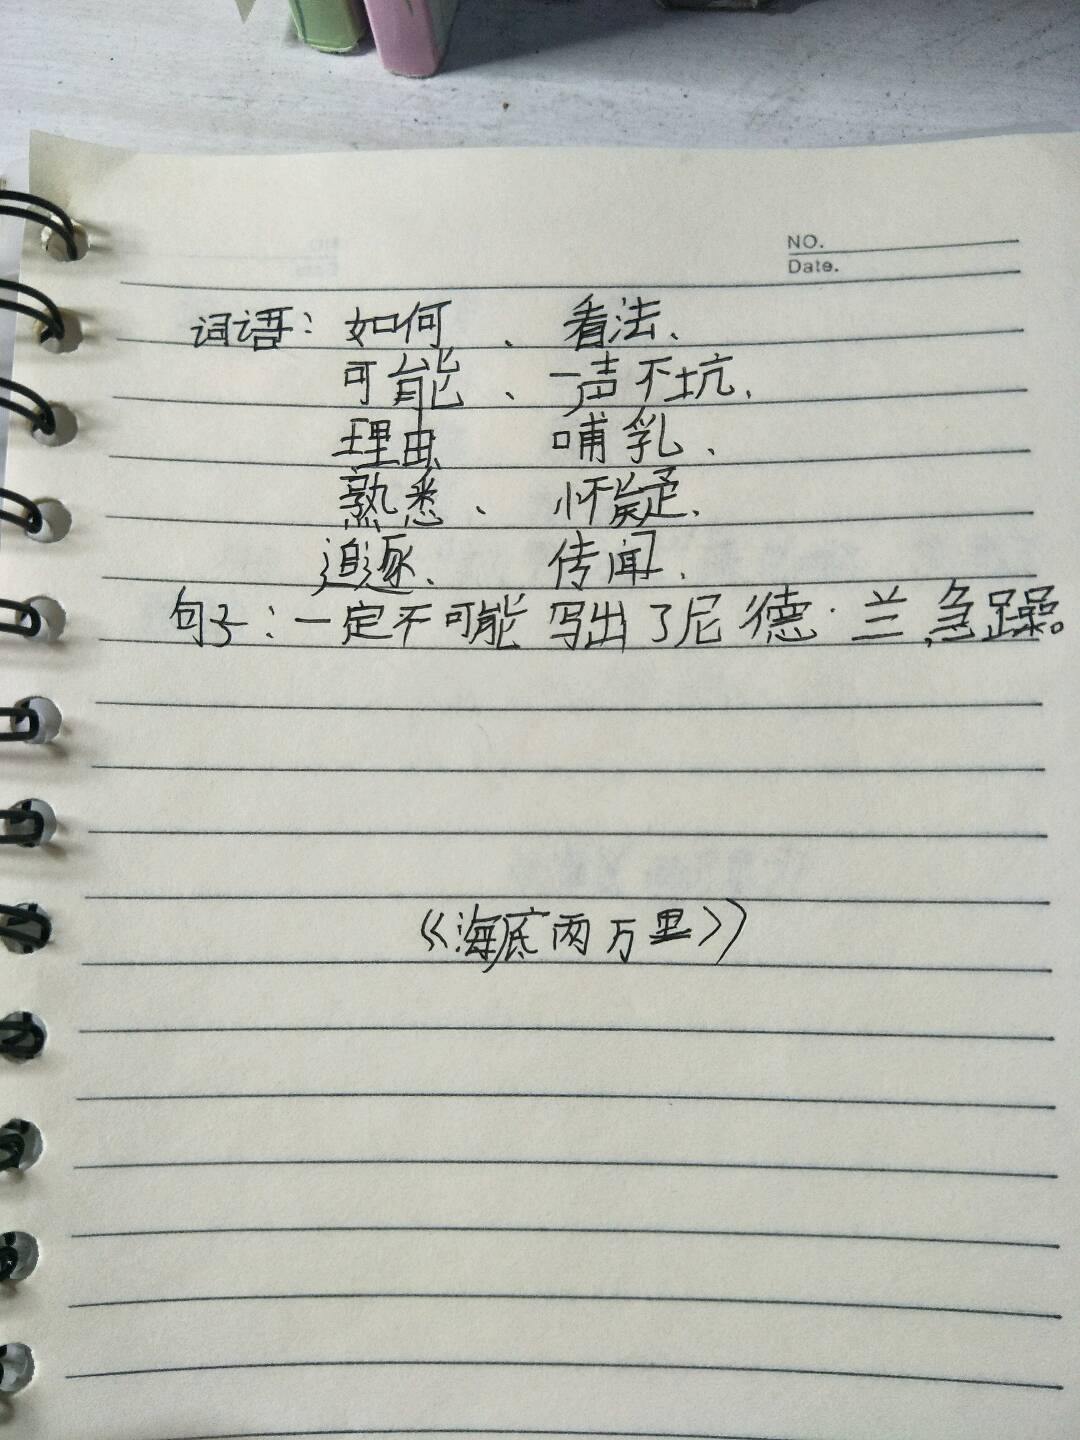 NO.
Date.
词语：如何、看法、
可能、一声不坑、
理由 哺乳、
熟悉、怀疑、
追逐、传闻、
句子：一定不可能写出了尼德·兰急躁。
《海底两万里》